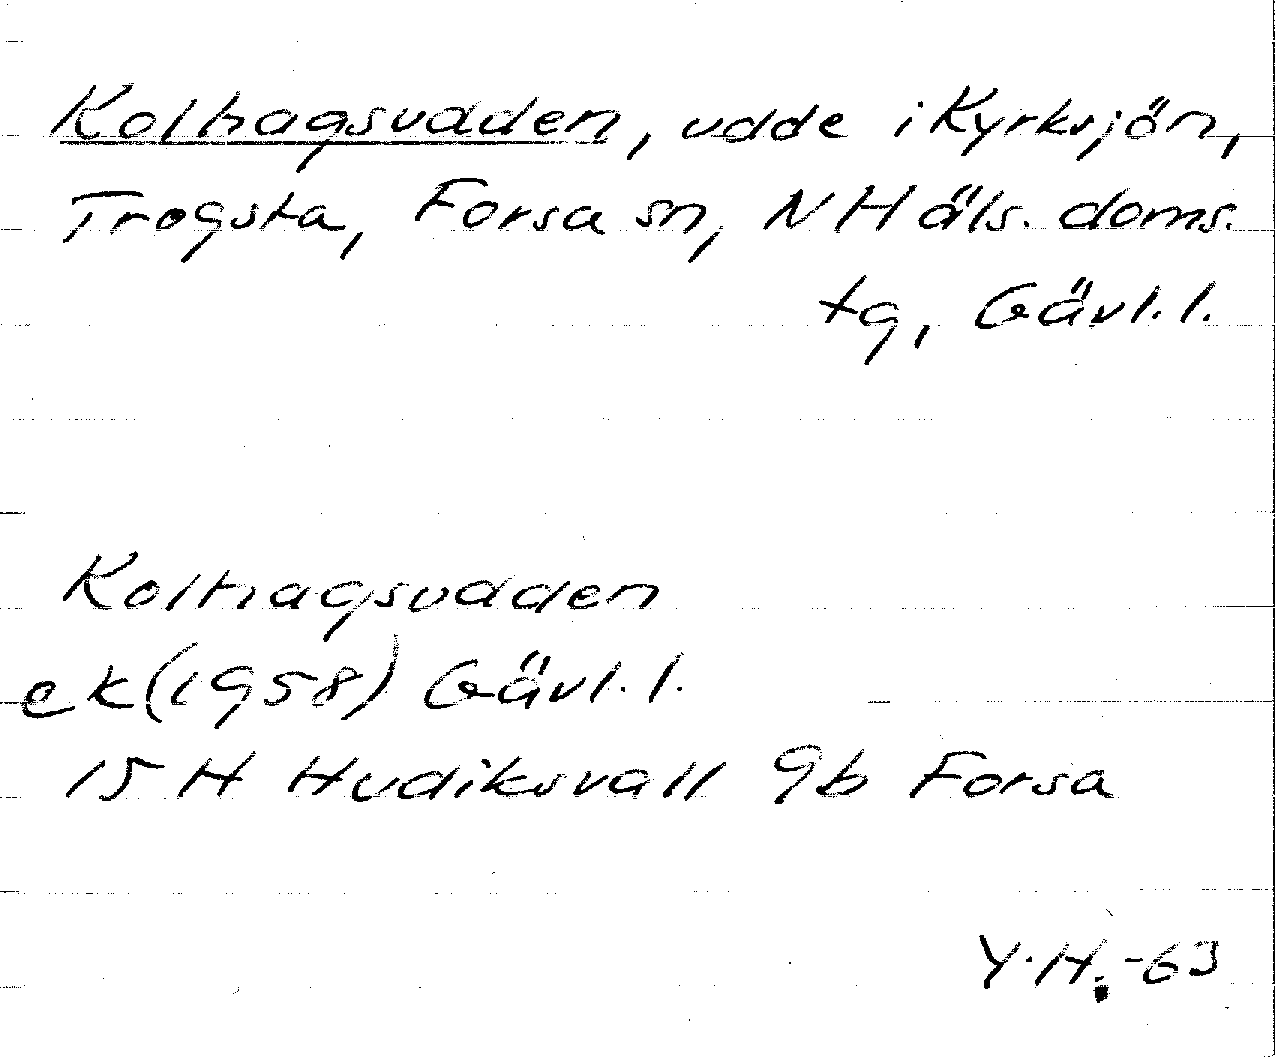 Kolhagsudden, udde i Kyrksjön,
Trogsta, Forsa sn, N Häls. doms.
tg, Gävl. l.
Kolhagsudden
ek (1958) Gävl. l.
15 H Hudiksvall 9b Forsa
Y.H. -63